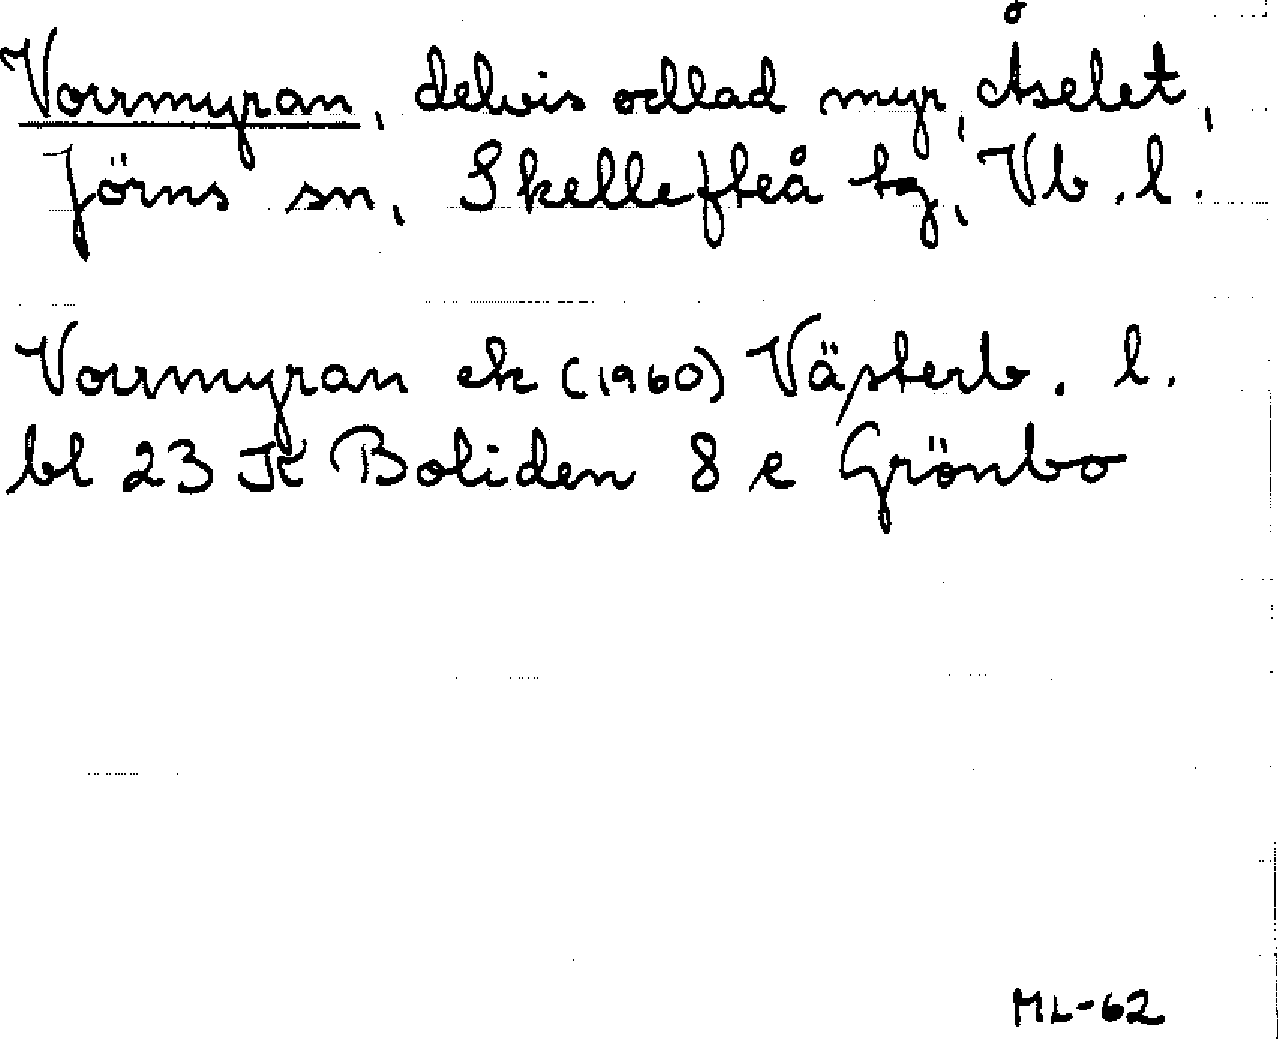 Vorrmyran, delvis odlad myr, Åselet,
Jörns sn, Skellefteå tg, Vb.l.
Vorrmyran ek (1960) Västerb. l.
bl 23 K Boliden 8 e Grönbo
ML-62